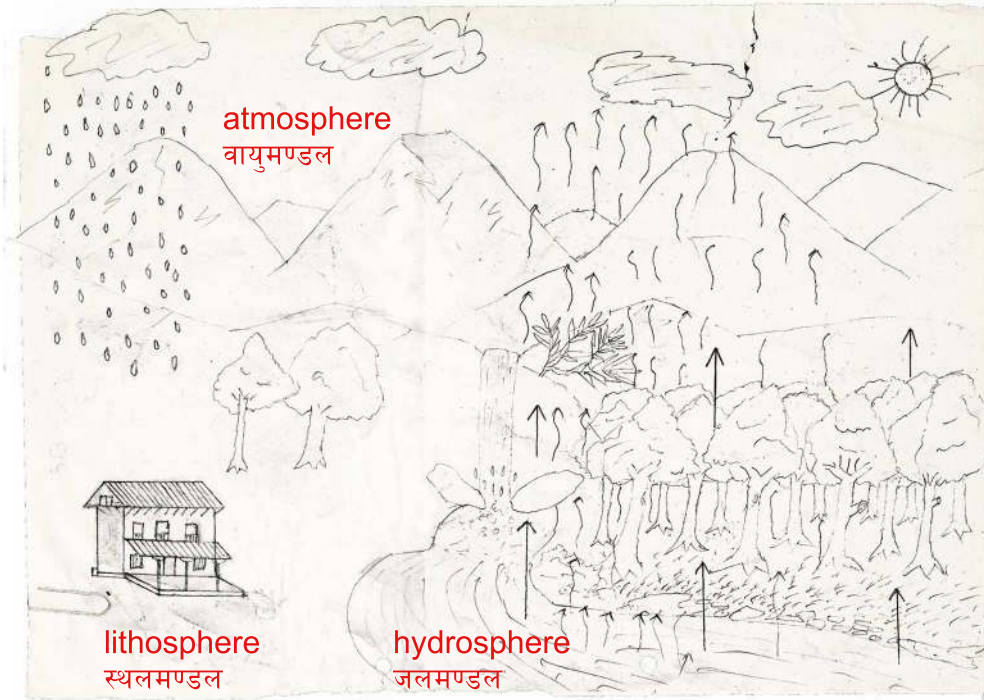 atmosphere
वायुमण्डल
lithosphere
स्थलमण्डल
hydrosphere
जलमण्डल